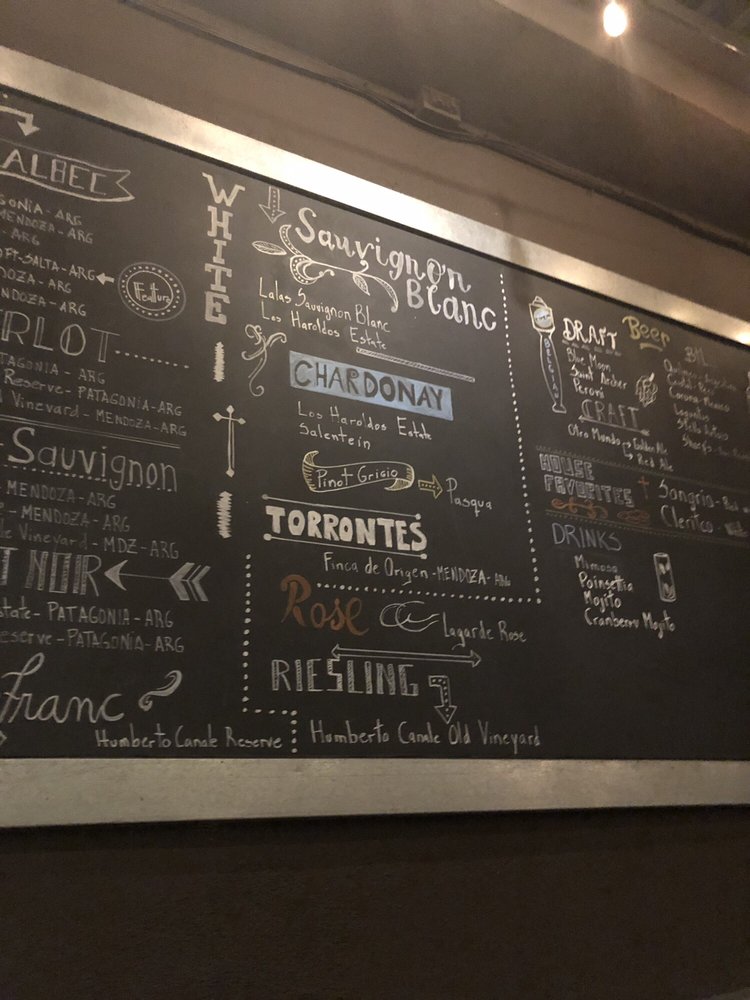 ALBEC
GONIA - ARG
MENDOZA - ARG
- ARG
OFF - SALTA - ARG
DOZA - ARG
MENDOZA - ARG
Feature
RLOT
TAGONIA - ARG
Reserve - PATAGONIA - ARG
d Vineyard - MENDOZA - ARG
Sauvignon
MENDOZA - ARG
- MENDOZA - ARG
le Vineyard - MDZ - ARG
T NOIR
state - PATAGONIA - ARG
eserve - PATAGONIA - ARG
Franc
Humberto Canale Reserve
WHITE
Sauvignon
Blanc
Lalas Sauvignon Blanc
Los Haroldos Estate
CHARDONAY
Los Haroldos Estate
Salentein
Pinot Grigio
Pasqua
TORRONTES
Finca de Origen - MENDOZA - ARG
Rose
Lagarde Rose
RIESLING
Humberto Canale Old Vineyard
Beer
DRAFT
BELGIAN
Blue Moon
Saint Archer
Peroni
CRAFT
Otro Mundo Golden Ale
Red Ale
Corona
Lagunitas
Stella Artois
HOUSE
FAVORITES
Sangria - Red
Clerico
DRINKS
Mimosa
Poinsettia
Mojito
Cranberry Mojito